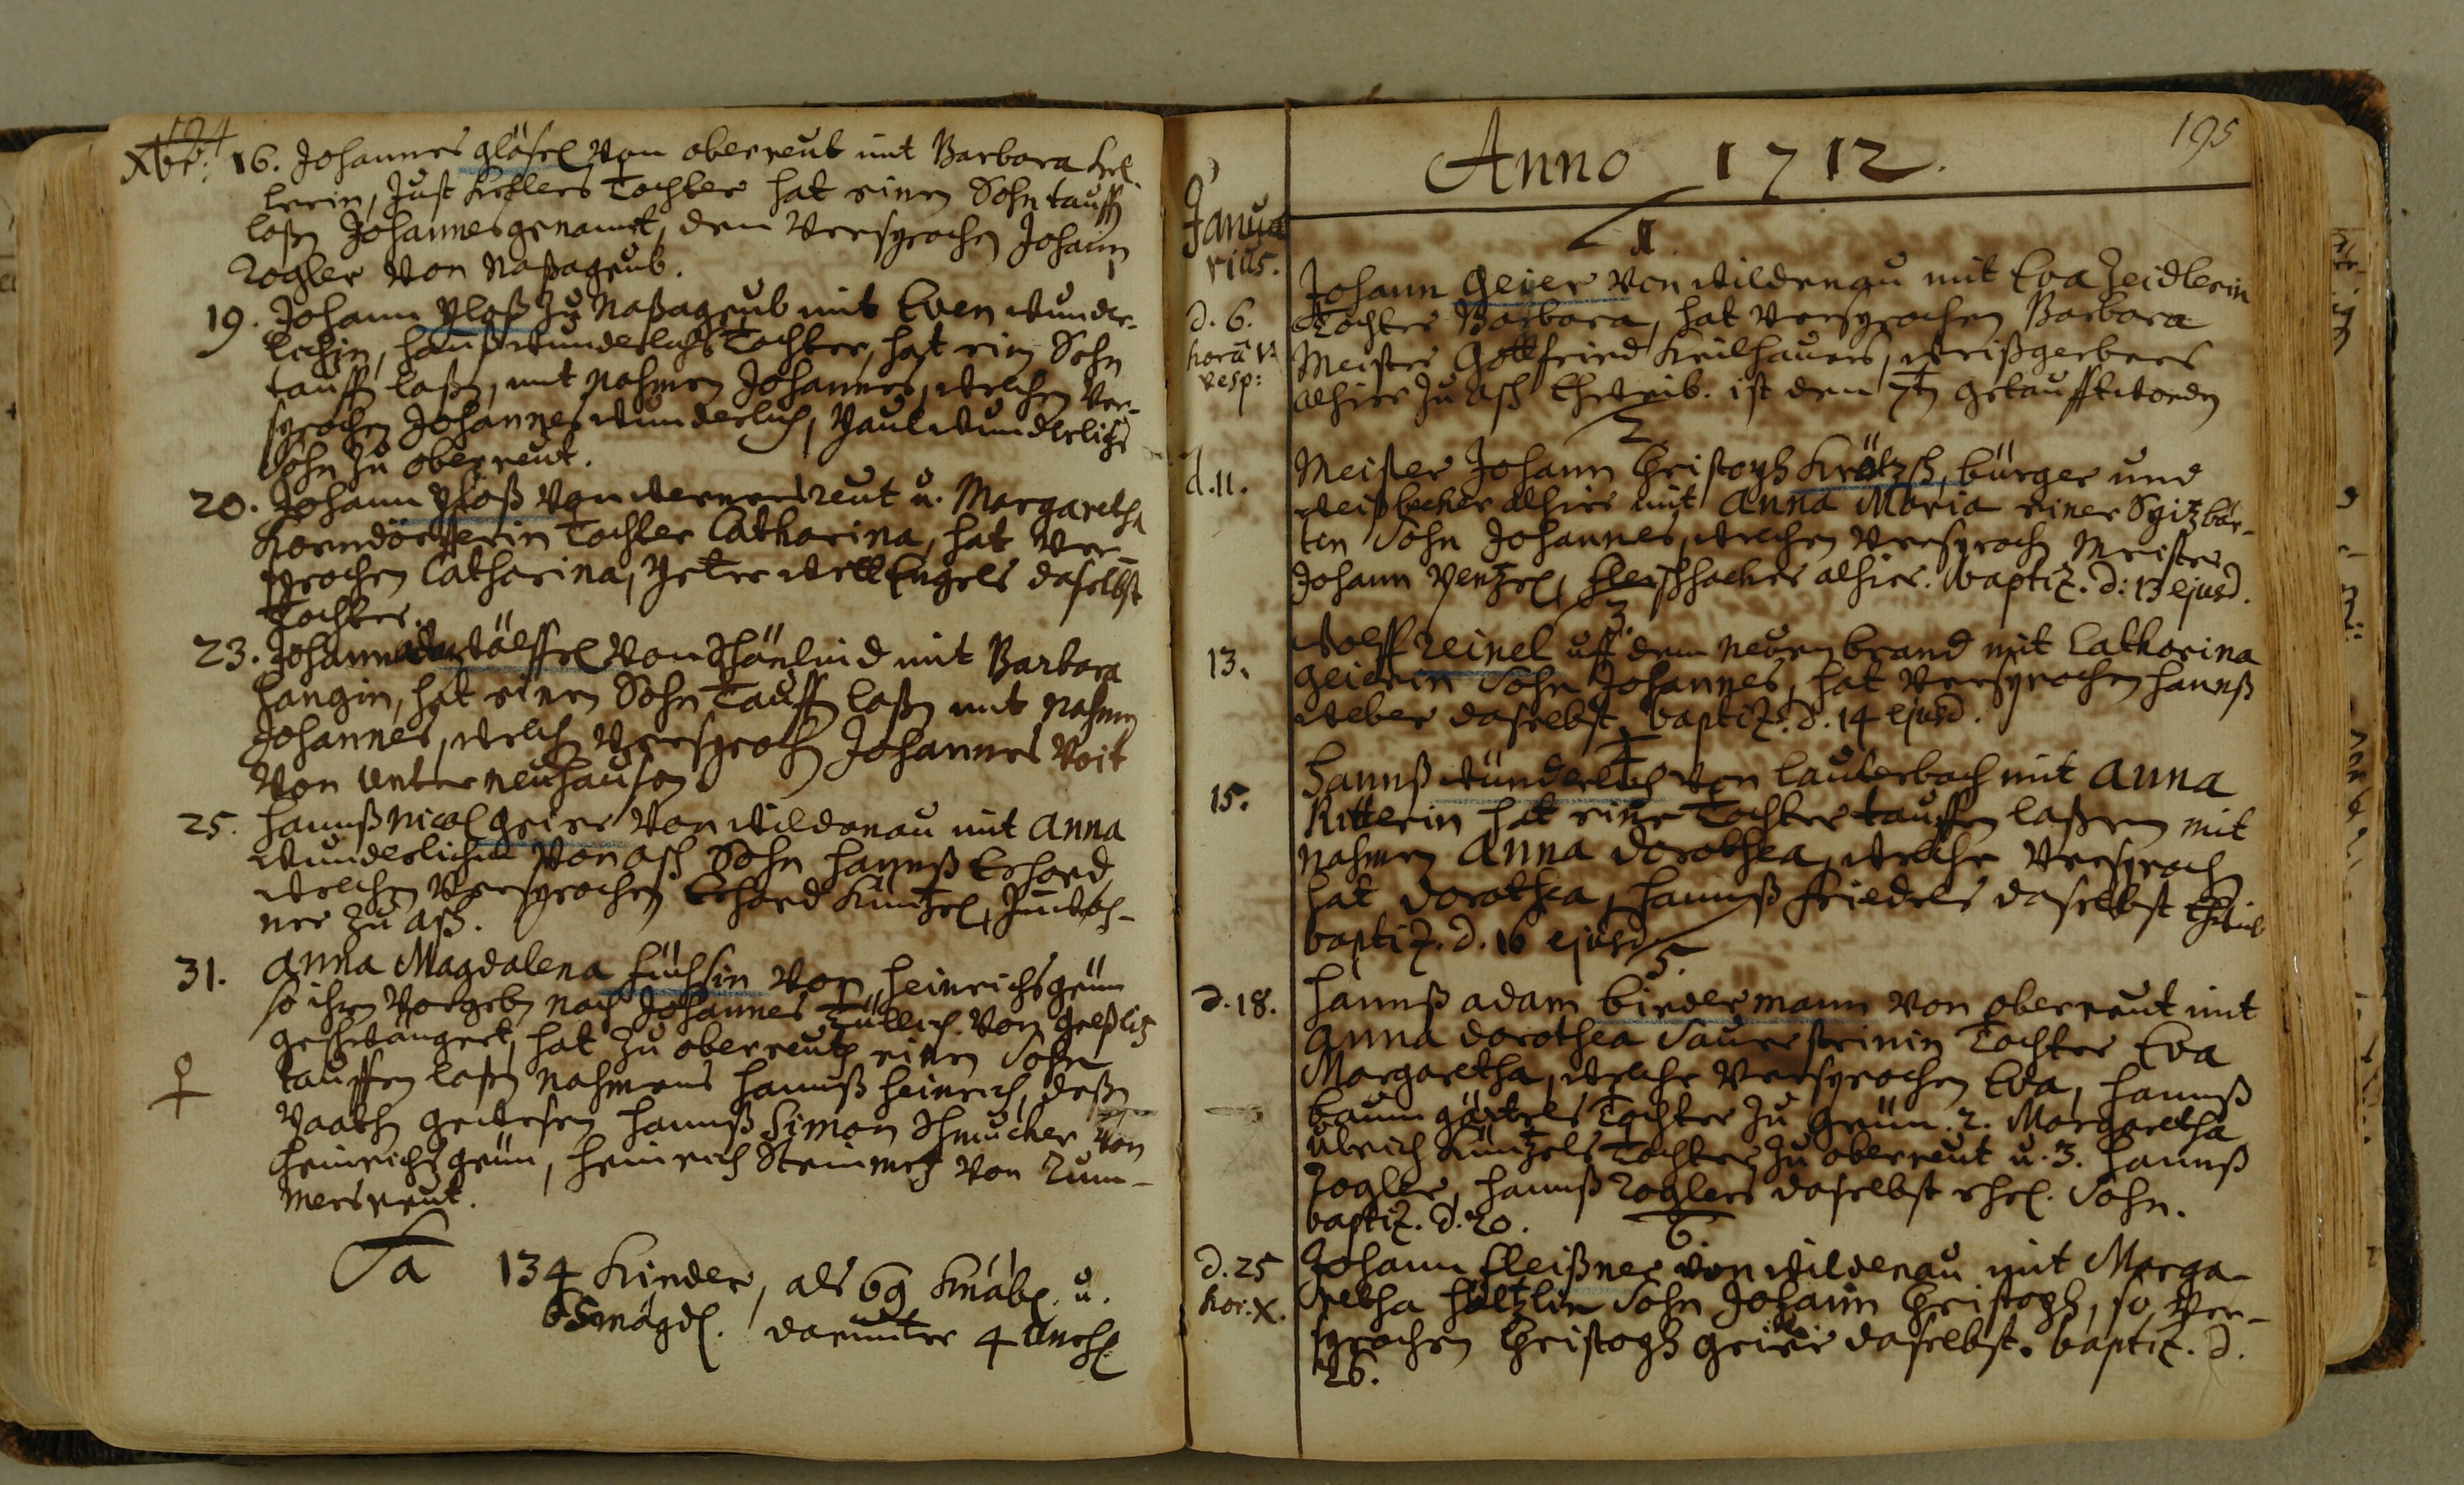 194
Xbr. 16. Johannes Gläsel von Oberreut mit Barbara Kel-
lerin, Just Kellers Tochter hat einen Sohn tauffen
laßen Johannes genannt, den versprochen Johann
Zogler von Naßagrub.
19. Johann Ploß zu Naßagrub mit Even Wunder-
lichin, Hanß Wunderlichs Tochter, hat ein Sohn
tauffen laßen, mit nahmen Johannes, welchen ver-
sprochen Johannes Wunderlich, Paul Wunderlichs
Sohn zu Oberreut.
20. Johann Ploß von Wernersreut u. Margaretha
Korndörfferin Tochter Catharina, hat ver-
sprochen Catharina, Peter Engels daselbst
Tochter.
23. Johann Wölffel von Schönlind mit Barbara
Langin, hat einen Sohn Tauffen laßen mit nahmen
Johannes, welchen versprochen Johannes Voit
von Unterneuhausen
25. Hannß Nicol Geier von Wildenau mit Anna
Wunderlichin von Asch Sohn Hannß Erhard
welchen versprochen Erhard Küntzel, Inwoh-
ner zu Asch.
31. Anna Magdalena Füchsin von Heinrichsgrün
so ihren vorgeben nach Johannes von
geschwängert, hat zu Oberreut einen Sohn
tauffen laßen nahmens Hannß Heinrich, deßen
Paathen gewesen Hannß Simon Schmucker von
Heinrichsgrün, Heinrich Steinmetz von Rum-
mersreut.
Sa 134 Kinder, als 69 Knäbl. u.
65 mägdl. darunter 4 unehl
195
Anno 1712.
Janua
rius.
1.
d. 6.
hora 1.
vesp:
Johann Geier von Wildenau mit Eva Zeidlerin
Tochter Barbara, hat versprochen Barbara
Meister Gottfried Keilhauers, Weißgerbers
alhier zu Asch Eheweib. ist den 7ten getaufft worden
2.
d. 11.
Meister Johann Christoph Krätzsch, bürger und
Weißbecker alhier mit Anna Maria einer Spitzbar-
tin Sohn Johannes, welchen versprochen Meister
Johann Pentzel, Fleischhacker alhier. baptiz. d: 13 ejusd.
3.
13.
Wolff Reinel uff dem neuenbrand mit Catharina
Geierin Sohn Johannes, hat versprochen Hannß
Weber daselbst. baptiz. d. 14 ejusd.
4
15.
Hannß Wunderlich von Lauterbach mit Anna
Ritterin hat eine Tochter tauffen laßen mit
nahmen Anna Dorothea, welche versprochen
hat Dorothea, Hannß Friedels daselbst Eheweib
baptiz. d. 16 ejusd.
5.
d. 18.
Hannß Adam Biedermann von Oberreut mit
Anna Dorothea Sauersteinin Tochter Eva
Margaretha, welche versprochen Eva, Hannß
Baumgärtels Tochter zu Grün. 2. Margaretha
Ulrich Küntzels Tochter zu Oberreut u. 3. Hannß
Zogler, Hannß Zoglers daselbst ehel. Sohn.
baptiz. d. 20.
6.
d. 25
hor. X.
Johann Fleißner von Wildenau mit Marga-
retha Höltzlin Sohn Johann Christoph, so ver-
sprochen Christoph Geier daselbst. baptiz. d.
26.